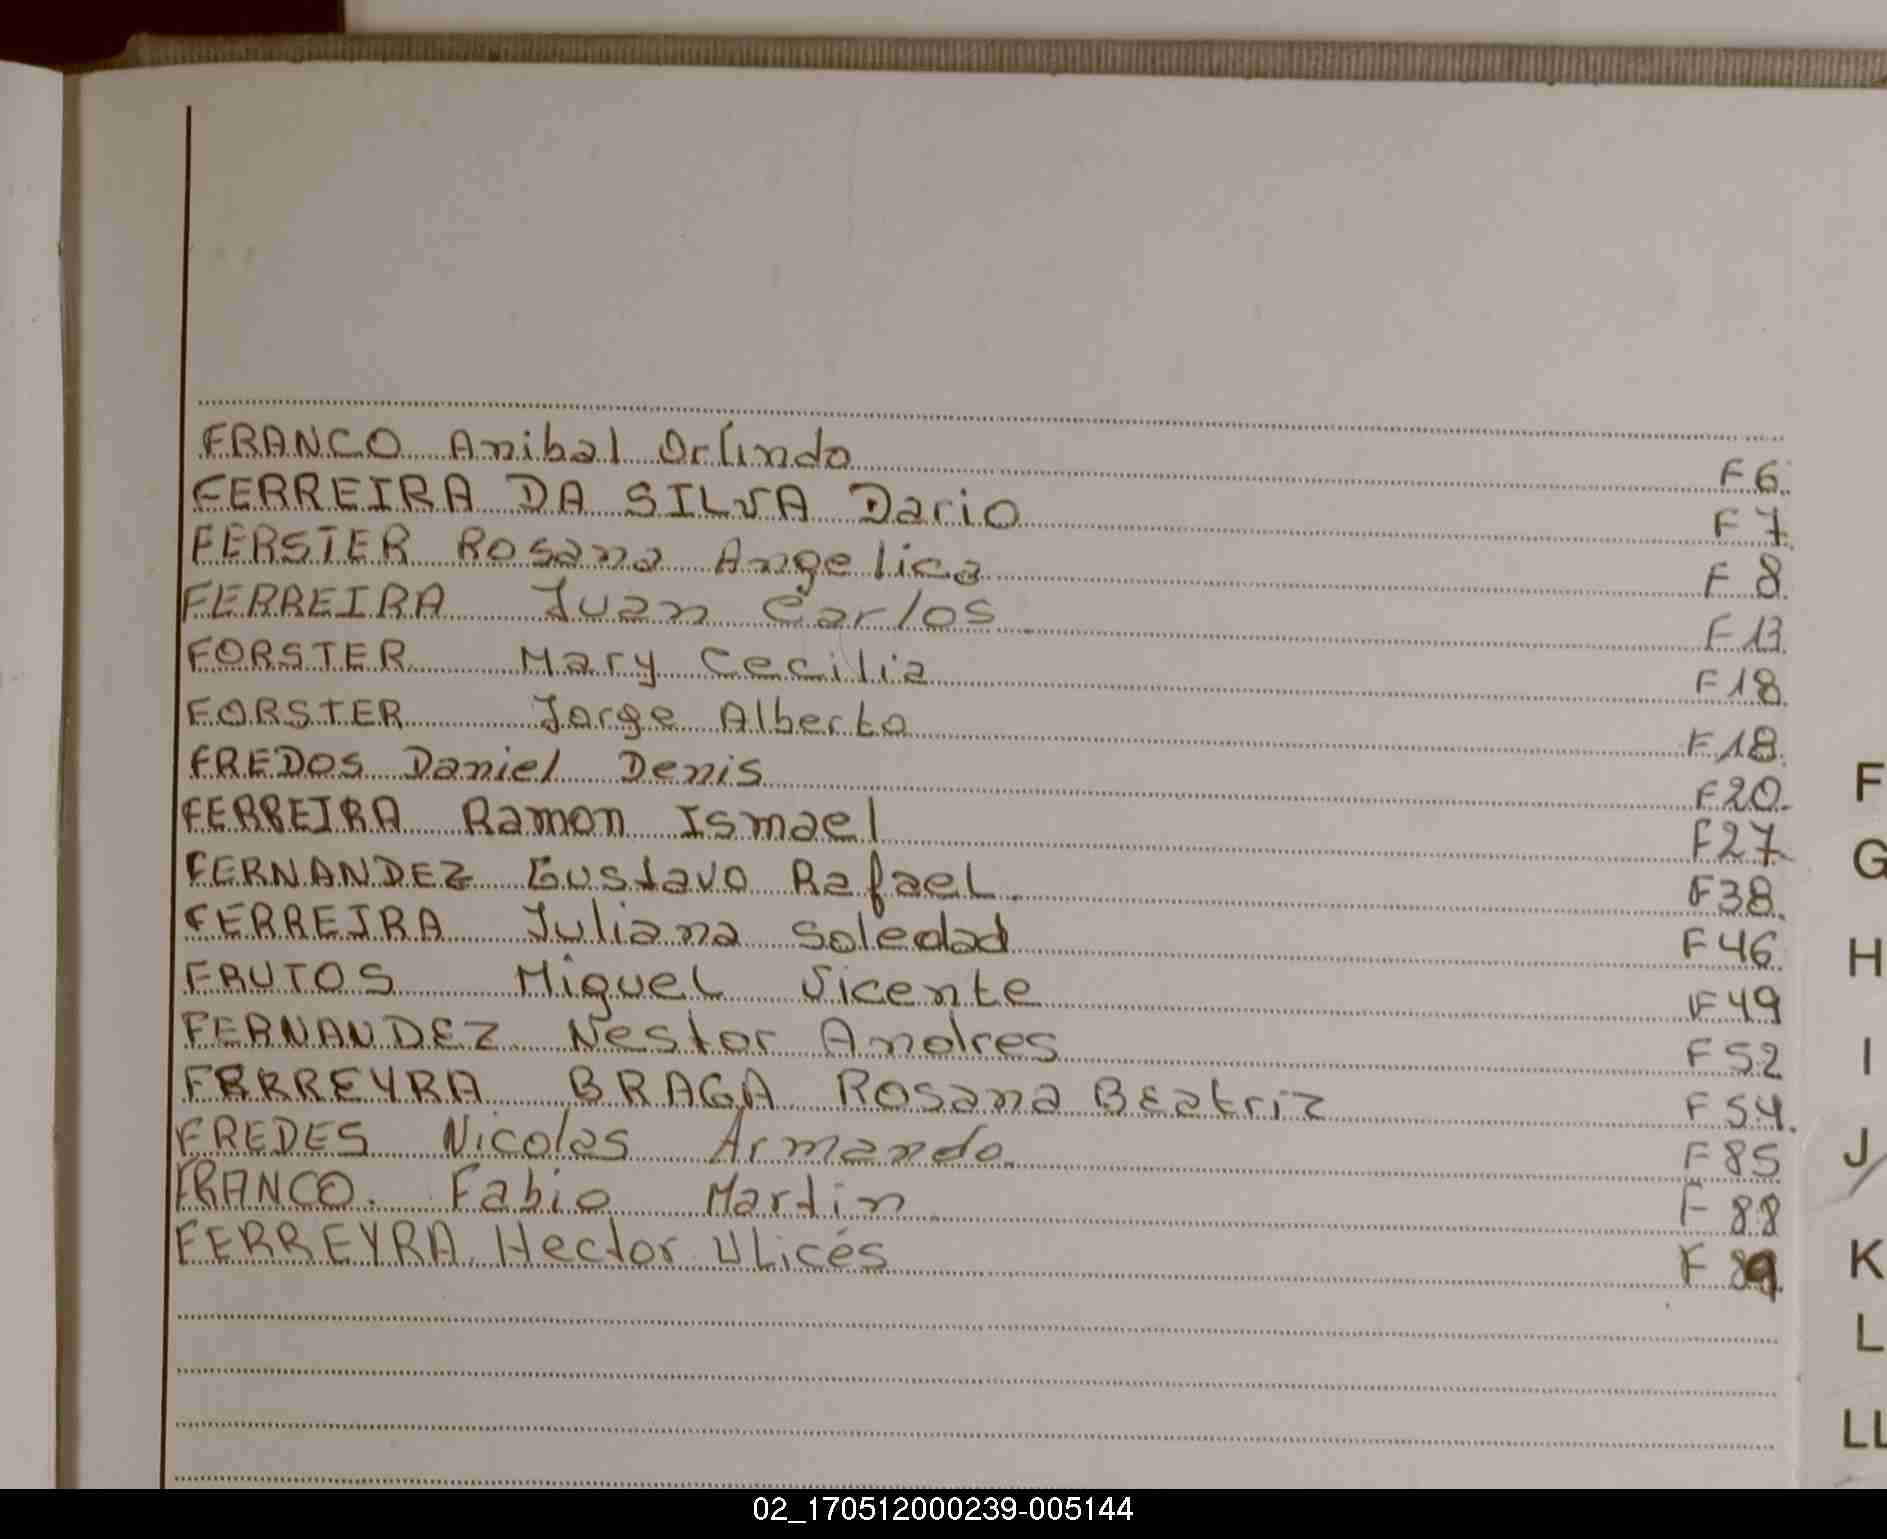 FRANCO Anibal Orlindo F6
FERREIRA DA SILVA Dario F7
FERSTER Rosana Angelica F8
FERREIRA Juan Carlos F13
FORSTER Mary Cecilia F18
FORSTER Jorge Alberto F18
FREDOS Daniel Denis F20
FERREIRA Ramon Ismael F27
FERNANDEZ Gustavo Rafael F38
FERREIRA Juliana Soledad F46
FRUTOS Miguel Vicente F49
FERNANDEZ Nestor Andres F52
FERREYRA BRAGA Rosana Beatriz F54
FREDES Nicolas Armando F85
FRANCO. Fabio Martin F88
FERREYRA Hector Ulicés F89
F
G
H
I
J
K
L
LL
02_170512000239-005144